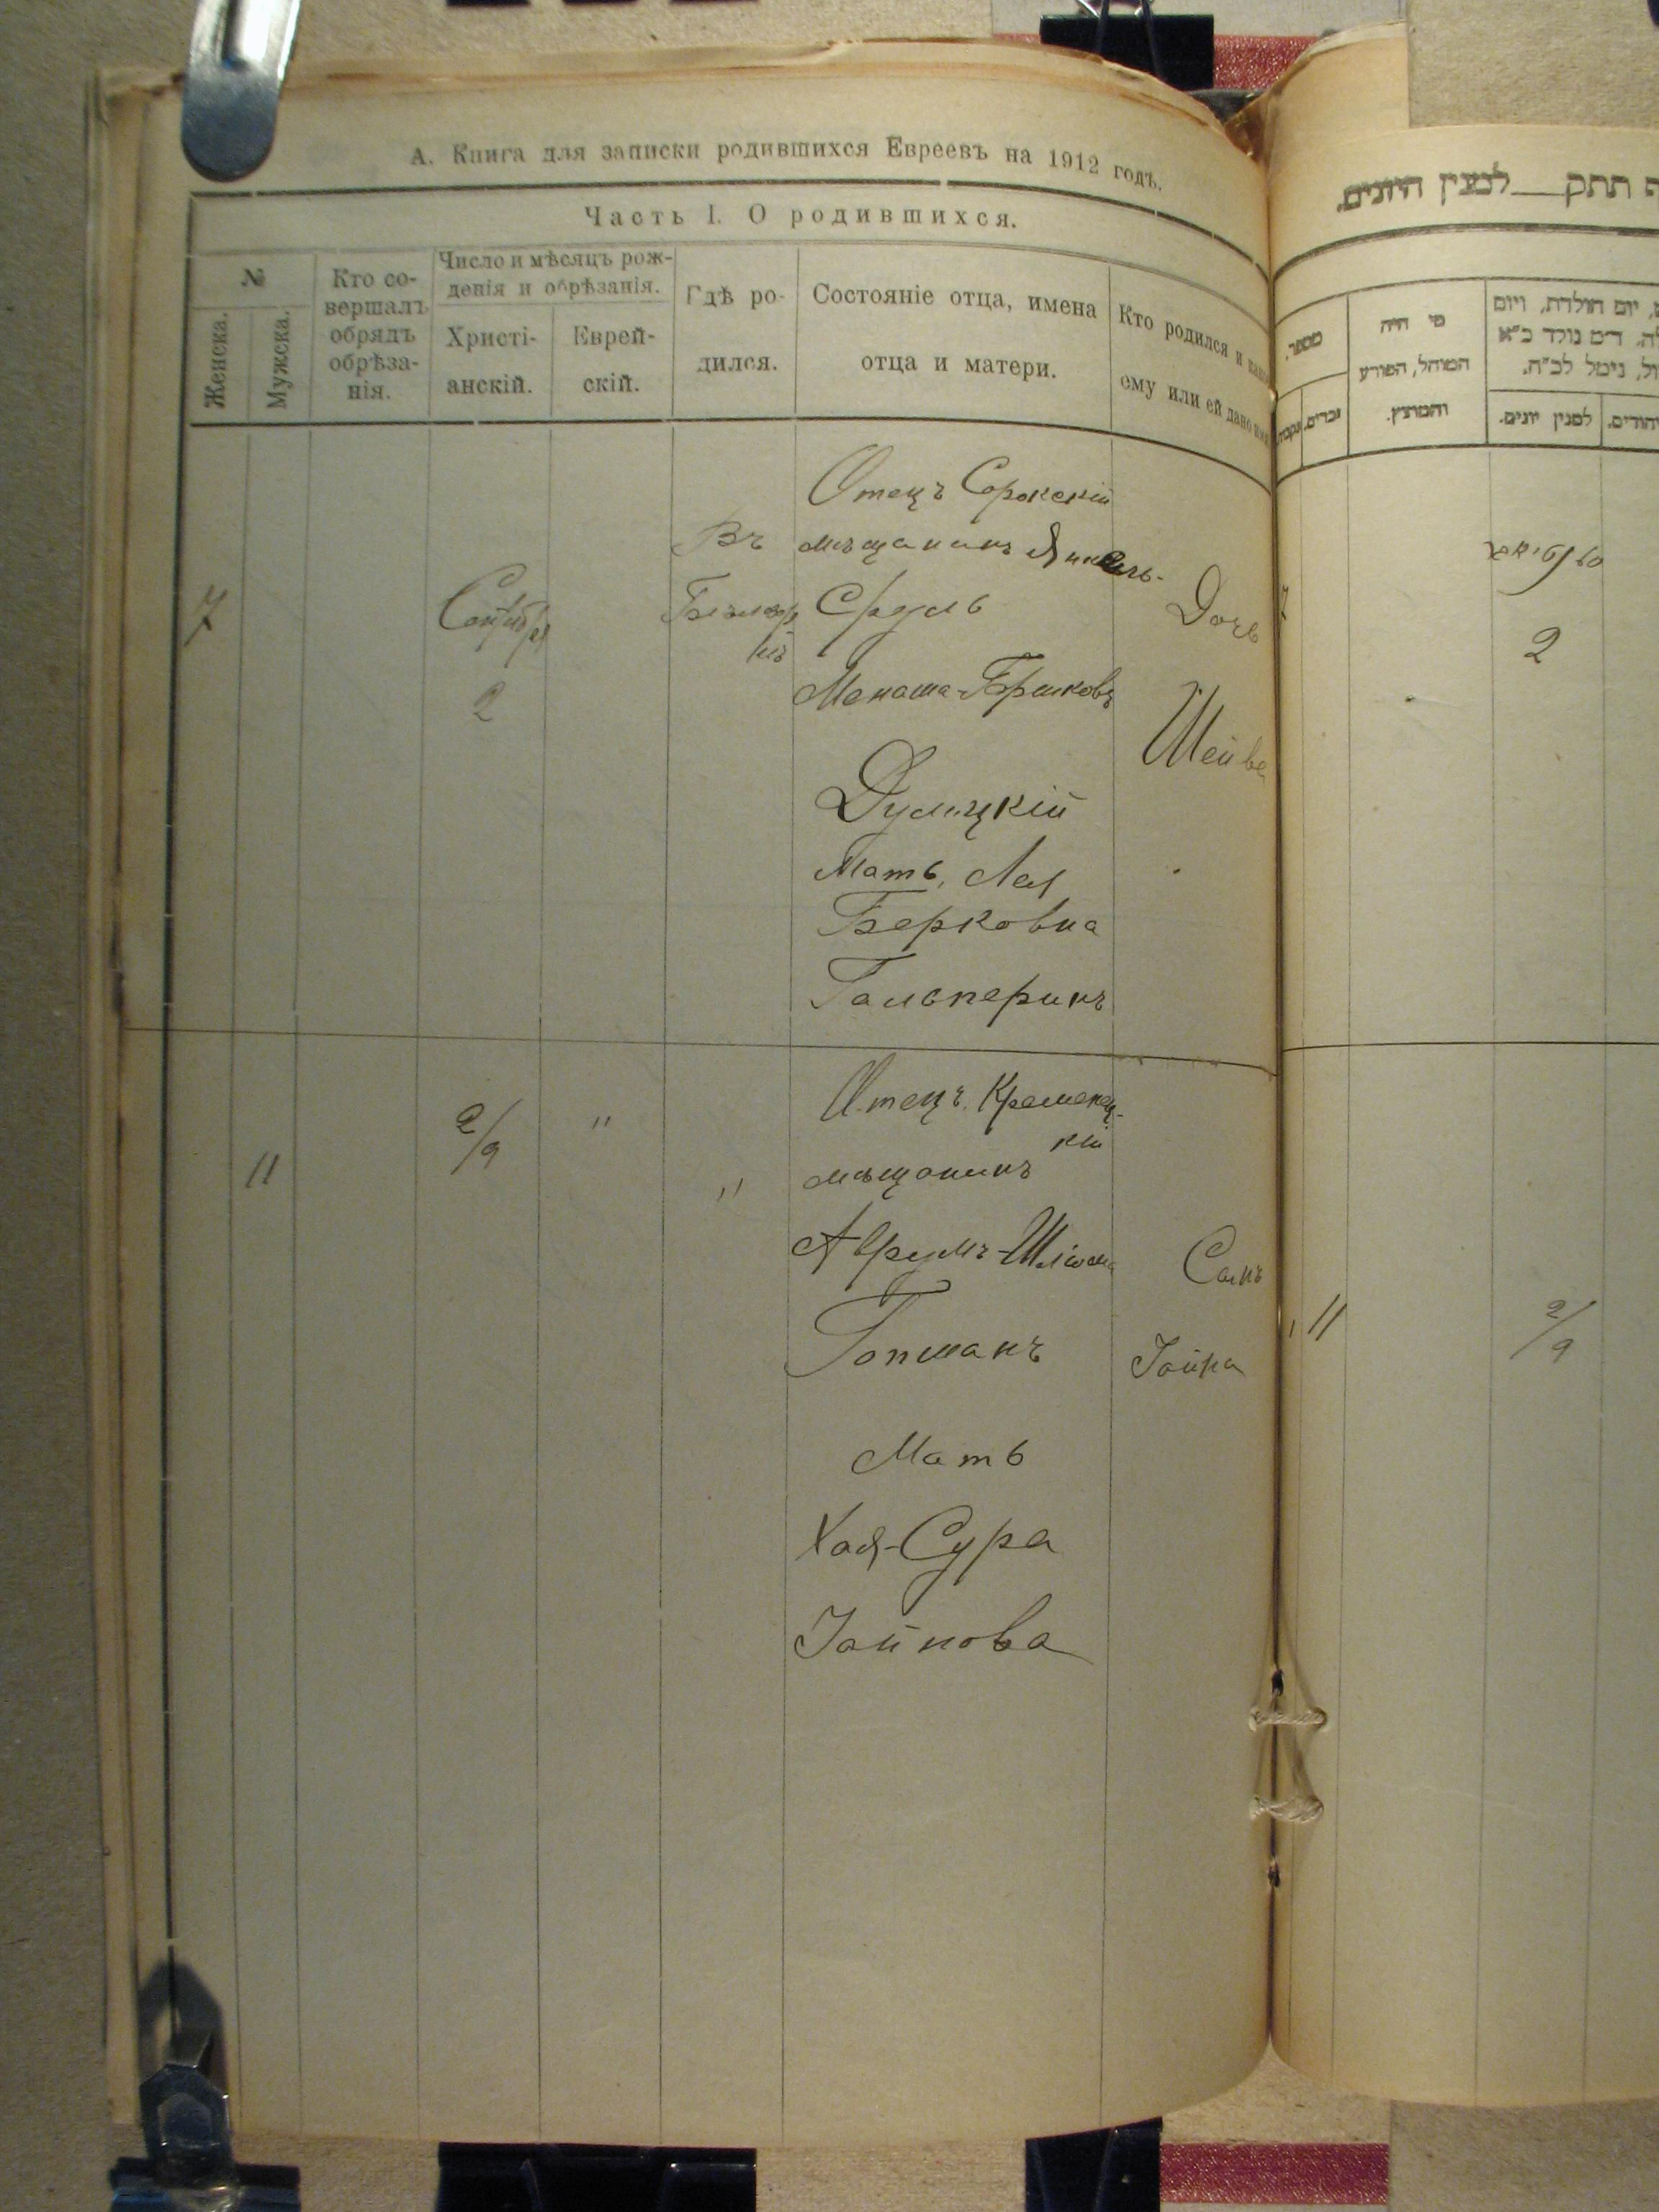 А. Книга для записки родившихся Евреевъ на 1912 годъ.
Часть I. О родившихся.
№
Женска.
Мужска.
Кто со-
вершалъ
обрядъ
обрѣза-
нія.
Число и мѣсяцъ рож-
денія и обрѣзанія.
Христі-
анскій.
Еврей-
скій.
Гдѣ ро-
дился.
Состояніе отца, имена
отца и матери.
Кто родился и какое
ему или ей дано имя
7
Сентября
2
Въ
Отецъ Сорокскій
мѣщанинъ Янкель-
Срулъ
Менаша-Гершковъ
Дулицкій
Мать, Лея
Берковна
Гальперинъ
Дочь
Шейва
11
2/9
"
"
Отецъ Кременец-
кій
мѣщанинъ
Аврумъ-Шліома
Гопманъ
Мать
Хая-Сура
Сынъ
תתק___למנין היונים.
מספר.
זכרים.
מי היה
המוהל, הפורע
והמוצץ.
יום הולדת, ויום
נולד כ"א
נימל לכ"ח.
למנין יונים.
2
11
2/9